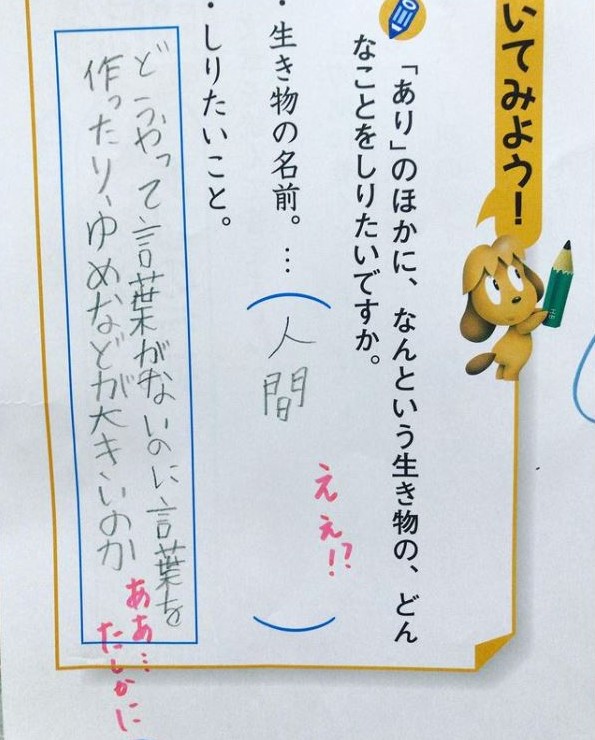 いてみよう！
「あり」のほかに、なんという生き物の、どん
なことをしりたいですか。
・生き物の名前。…（人間）
ええ!?
・しりたいこと。
どうやって言葉がないのに言葉を
作ったり、ゆめなどが大きいのか
ああ…
たしかに